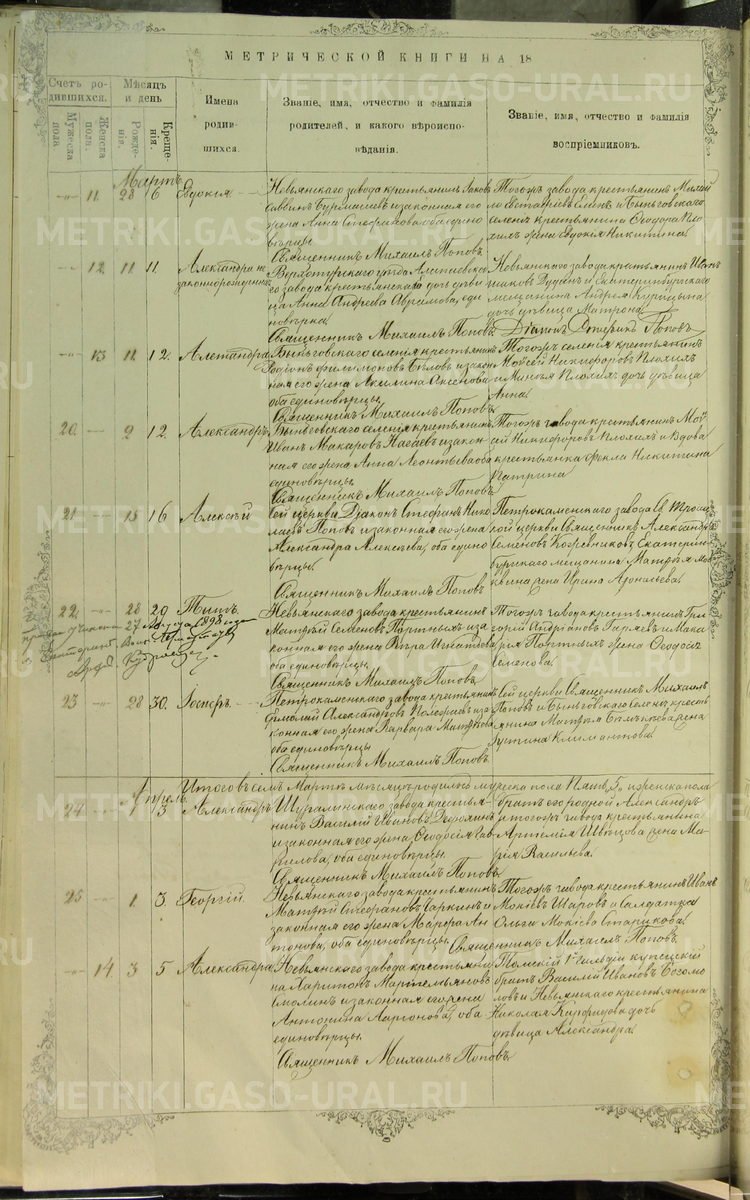 МЕТРИЧЕСКОЙ КНИГИ НА 18
Счетъ родившихся.
Мужеска пола
Женска пола.
Мѣсяцъ и день
Рожденія.
Крещенія.
Имена родившихся.
Званіе, имя, отчество и фамилія родителей, и какого вѣроисповѣданія.
Званіе, имя, отчество и фамилія воспріемниковъ.
Мартъ
11 28 6 Евдокія
Невьянскаго завода крестьянинъ
и законная его
жена Анна Стефанова оба едино
вѣрцы
Священникъ Михаилъ Поповъ
Тогоже завода крестьянинъ
и Быньговскаго
селенія крестьянина Ѳеодора
жена Евдокія Никитина
12. 11 11. Александра незаконнорожденная
Верхотурскаго уѣзда
завода крестьянская дочь дѣви
ца Анна Андреева Абрамова, еди
новѣрка
Священникъ Михаилъ Поповъ
Невьянскаго завода крестьянинъ Иванъ
и Екатеринбургскаго
мѣщанина Андрея
дочь дѣвица Матрона
Діаконъ Поповъ
13 11 12. Александра
Быньговскаго селенія крестьянинъ
Родіонъ Филимоновъ Бѣловъ и закон
ная его жена Акилина Аксенова
оба единовѣрцы
Священникъ Михаилъ Поповъ
Тогоже селенія крестьянинъ
Мойсей Никифоровъ Плохихъ
и Плохихъ дочь дѣвица
Анна
20. 9 12. Александръ
селенія крестьянинъ
Иванъ Макаровъ и закон
ная его жена Анна Леонтьева оба
единовѣрцы
Священникъ Михаилъ Поповъ
Тогоже завода крестьянинъ Мой
сей Никифоровъ Плохихъ и вдова
крестьянка Фекла Никитина
21 15 16 Алексѣй
Сей церкви Діаконъ Стефанъ Нико
лаевъ Поповъ и законная его жена
Александра Алексѣева, оба едино
вѣрцы.
Священникъ Михаилъ Поповъ
Петрокаменскаго завода Св. Трои
цкой церкви священникъ Александръ
Семеновъ Кожевниковъ Екатерин
бургскаго мѣщанина Матѳея
жена Ирина
22. 28 29 Титъ
27 1898 года
Невьянскаго завода крестьянинъ
Матѳей Семеновъ Портныхъ и за
конная его жена Вѣра Игнатова
оба единовѣрцы.
Священникъ Михаилъ Поповъ
Тогоже завода крестьянинъ Гри
горій Андріановъ и Мака
рія Портныхъ жена Ѳеодосія
Семенова.
23 28 30.
Петрокаменскаго завода крестьянинъ
Ермолай Александровъ и за
конная его жена Варвара Матѳеева
оба единовѣрцы
Священникъ Михаилъ Поповъ
Сей церкви Священникъ Михаилъ
Поповъ и Быньговскаго селенія крестья
нина Матѳея жена
Устина Климантова.
Итого въ семъ Мартѣ мѣсяцѣ родилось мужеска пола Пять, 5, и женска пола
Апрель
24 1 3 Александръ
Шуралинскаго завода крестья
нинъ Василій Ивановъ
и законная его жена Ѳеодосія Гав
рилова, оба единовѣрцы.
Священникъ Михаилъ Поповъ
братъ его родной Александръ
и тогоже завода крестьянина
Артемія Швецова жена Ма
рія Васильева.
25 1 3. Георгій
Невьянскаго завода крестьянинъ
Матѳей Стефановъ и
законная его жена Марѳа Ан
тонова, оба единовѣрцы
Священникъ Михаилъ Поповъ
Тогоже завода крестьянинъ Иванъ
Мокіевъ Шаровъ и солдатка
Ольга Мокіева Старикова
14 3 5 Александра
Невьянскаго завода крестьяни
на Харитонъ Мартемьяновъ
и законная его жена
Антонина Ларіонова, оба
единовѣрцы
Священникъ Михаилъ Поповъ.
Томскій 1й гильдіи купеческій
братъ Василій Ивановъ Богомо
ловъ и Невьянскаго крестьянина
Николая дочь
дѣвица Александра
METRIKI.GASO-URAL.RU